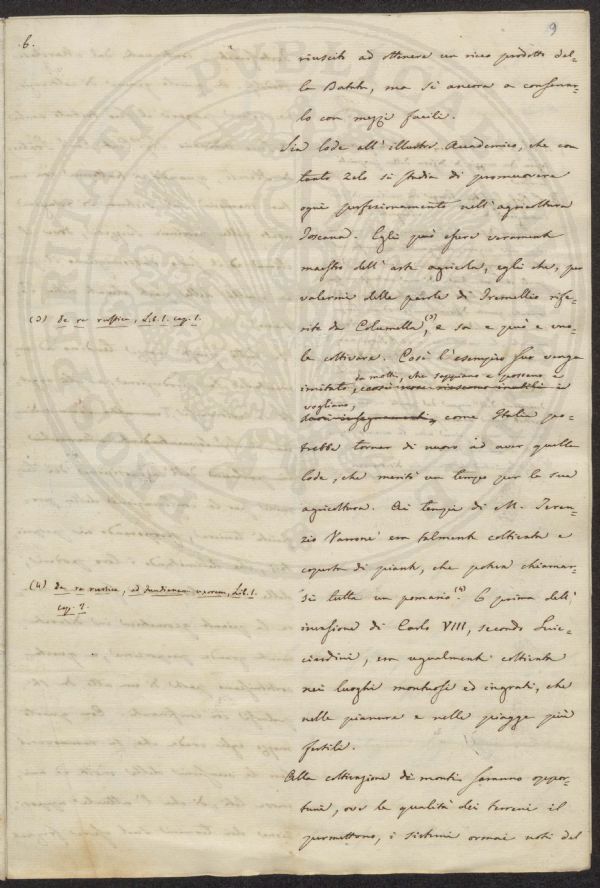 6.
9
riuscito ad ottenere un ricco prodotto del-
la Batata, ma si ancora a conservar-
lo con mezzi facili.
Sia lode all' illustre Accademico, che con
tanto zelo si studia di promuovere
ogni perfezionamento nell' agricoltura
Toscana. Egli può essere veramente
maestro dell' arte agricola, egli che, per
valermi delle parole di Tremellio rife-
rite da Columella,(3) e sa e può e vuo-
le coltivare. Così l' esempio suo venga
da molti, che sappiano e possano e
imitato,
vogliano,
come Italia po-
trebbe tornar di nuovo ad aver quella
lode, che meritò un tempo per la sua
agricoltura. Ai tempi di M. Teren-
zio Varrone era talmente coltivata e
coperta di piante, che potea chiamar-
si tutta un pomario.(4) E prima dell'
invasione di Carlo VIII, secondo Guic-
ciardini, era ugualmente coltivata
nei luoghi montuosi ed ingrati, che
nelle pianure e nelle piagge più
fertili.
Alla coltivazione di monti saranno oppor-
tuni, ove la qualità dei terreni il
permettono, i sistemi ormai noti del
(3) de re rustica, Lib. I. cap. I.
(4) de re rustica, ad fundaniam uxorem, Lib. I.
cap. 2.
PVBLICAE